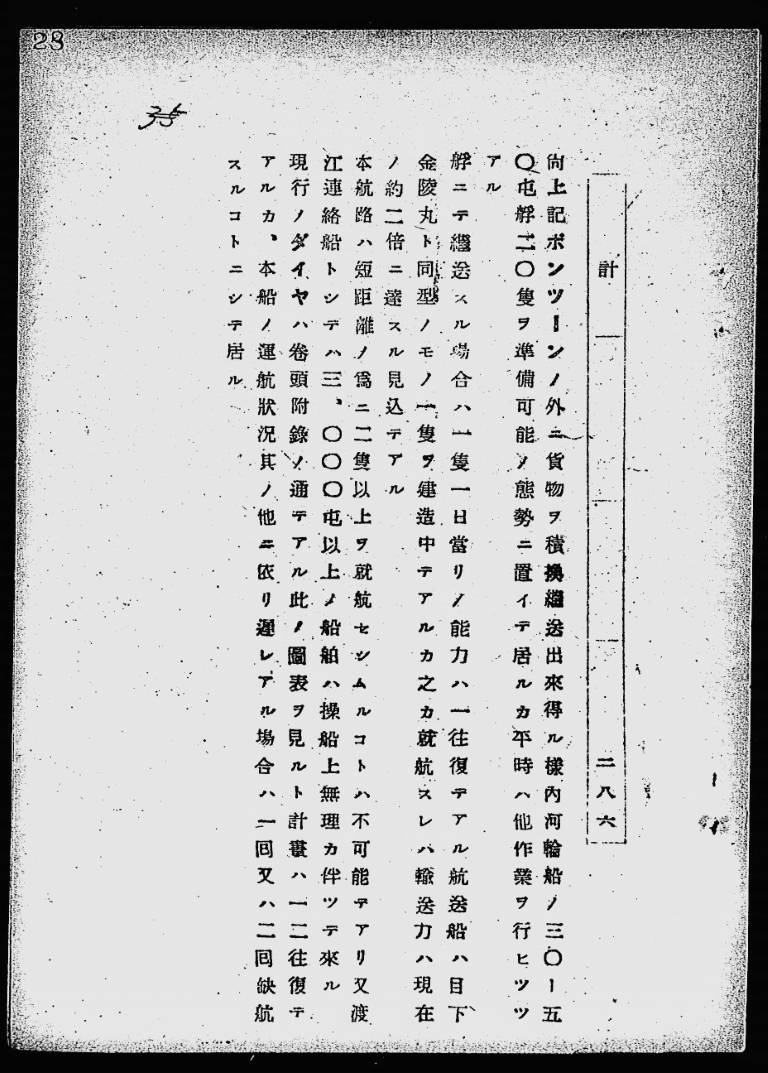 28
35
計 二八六
尙上記ポンツーンノ外ニ貨物ヲ積換繼送出來得ル樣內河輪船ノ三〇ー五
〇屯艀二〇隻ヲ準備可能ノ態勢ニ置イテ居ルカ平時ハ他作業ヲ行ヒツツ
アル
艀ニテ繼送スル場合ハ一隻一日當リノ能力ハ一往復テアル航送船ハ目下
金陵丸ト同型ノモノ一隻ヲ建造中テアルカ之カ就航スレハ輸送力ハ現在
ノ約二倍ニ達スル見込テアル
本航路ハ短距離ノ爲ニ二隻以上ヲ就航セシムルコトハ不可能テアリ又渡
江連絡船トシテハ三、〇〇〇屯以上ノ船舶ハ操船上無理カ伴ツテ來ル
現行ノダイヤハ卷頭附錄ノ通テアル此ノ圖表ヲ見ルト計畫ハ一二往復テ
アルカ、本船ノ運航狀況其ノ他ニ依リ遲レアル場合ハ一囘又ハ二囘缺航
スルコトニシテ居ル